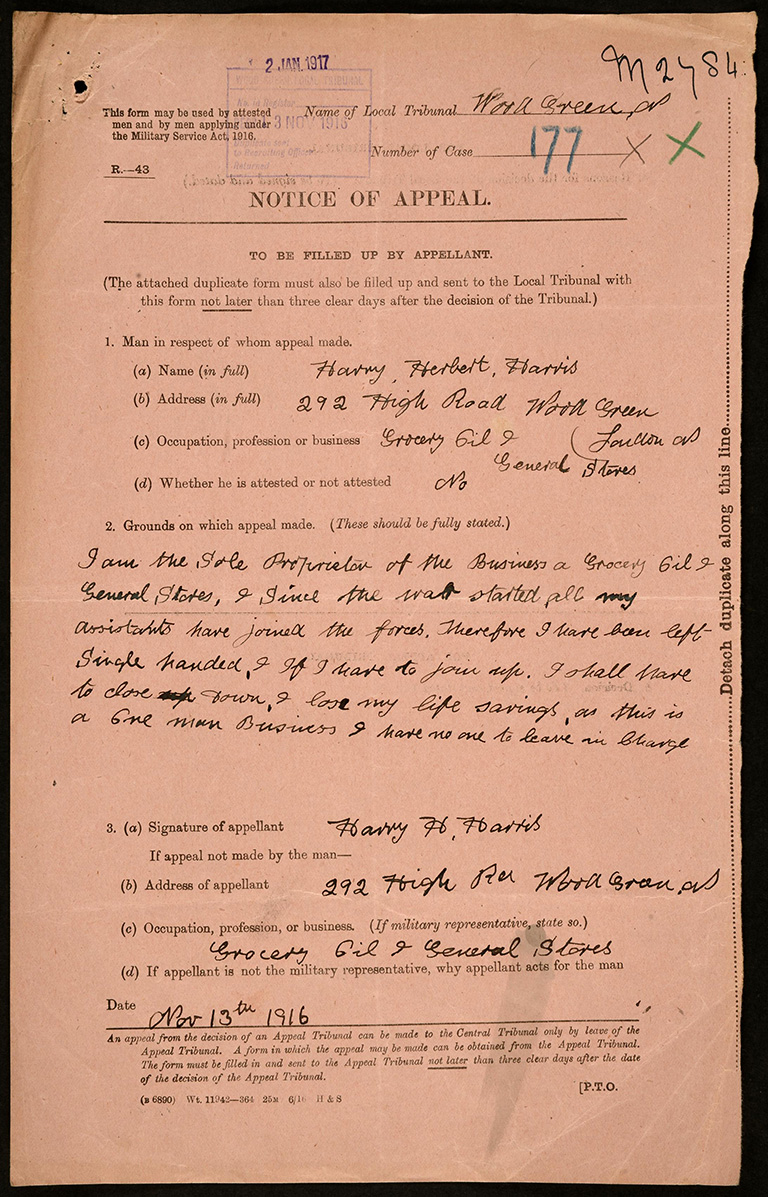 2 JAN. 1917
M2784.
This form may be used by attested
men and by men applying under
the Military Service Act, 1916.
R.—43
3 NOV 1916
Name of Local Tribunal Wood Green, N
Number of Case 177 X X
NOTICE OF APPEAL.
TO BE FILLED UP BY APPELLANT.
(The attached duplicate form must also be filled up and sent to the Local Tribunal with
this form not later than three clear days after the decision of the Tribunal.)
1. Man in respect of whom appeal made.
(a) Name (in full) Harry, Herbert, Harris
(b) Address (in full) 292 High Road Wood Green
(c) Occupation, profession or business Grocery Oil & (London N
General Stores
(d) Whether he is attested or not attested No
2. Grounds on which appeal made. (These should be fully stated.)
I am the Sole Proprietor of the Business a Grocery Oil &
General Stores, & Since the war started all my
assistants have joined the forces. Therefore I have been left
Single handed, & If I have to join up. I shall have
to close up Down, & lose my life savings, as this is
a One man Business & have no one to leave in Charge
3. (a) Signature of appellant Harry H. Harris
If appeal not made by the man—
(b) Address of appellant 292 High Rd Wood Green, N
(c) Occupation, profession, or business. (If military representative, state so.)
Grocery Oil & General Stores
(d) If appellant is not the military representative, why appellant acts for the man
Date Nov 13th 1916
An appeal from the decision of an Appeal Tribunal can be made to the Central Tribunal only by leave of the
Appeal Tribunal. A form in which the appeal may be made can be obtained from the Appeal Tribunal.
The form must be filled in and sent to the Appeal Tribunal not later than three clear days after the date
of the decision of the Appeal Tribunal.
[P.T.O.
(B 6890) Wt. 11942—364 25M 6/16 H & S
Detach duplicate along this line.